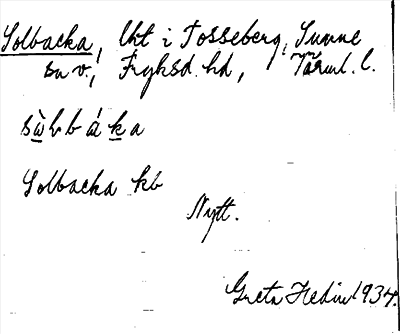 Solbacka, lht i Tosseberg, Sunne
sn v., Fryksd. hd, Värml. l.
sὼlbáka
Solbacka kb
Nytt.
Greta Hedin 1934.